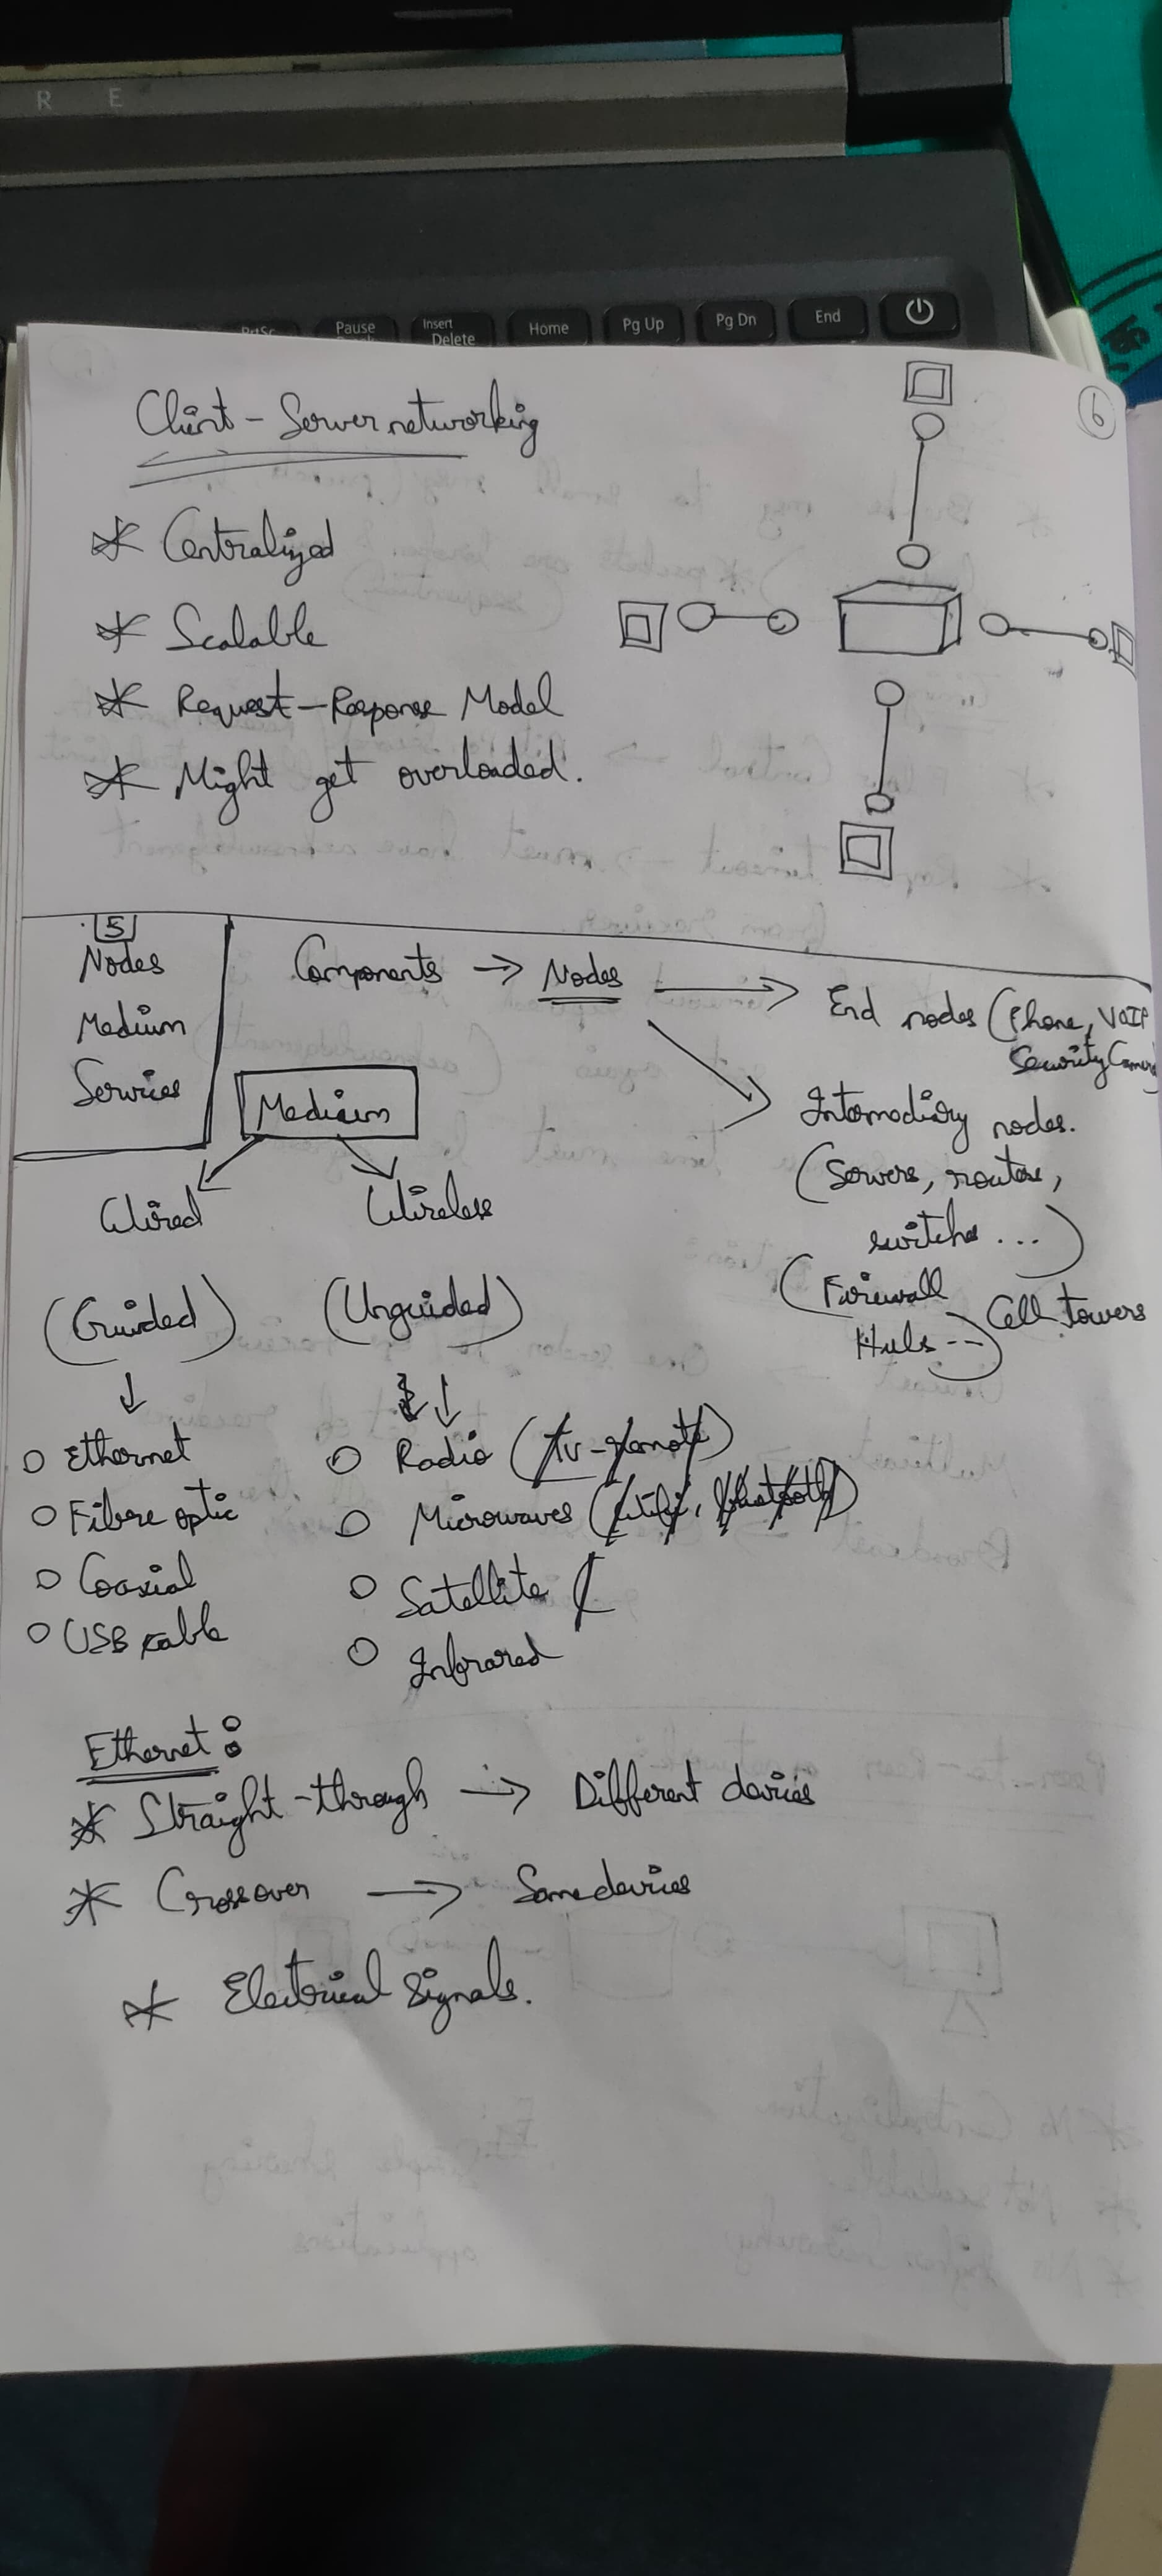 R E
PrtSc
Pause
Insert
Delete
Home
Pg Up
Pg Dn
End
6
Client - Server networking
* Centralized
* Scalable
* Request-Response Model
* Might get overloaded.
5
Nodes
Medium
Services
Components → Nodes → End nodes (Phone, VOIP
Security Camera)
Intermediary nodes.
(Servers, routers,
switches ...)
(Firewall
Hubs --) Cell Towers
Medium
Wired
Wireless
(Guided)
(Unguided)
○ Ethernet
○ Fibre optic
○ Coaxial
○ USB cable
○ Radio (tv-remote)
○ Microwaves (wifi, bluetooth)
○ Satellite (
○ Infrared
Ethernet:
* Straight-through → Different devices
* Crossover → Same devices
* Electrical Signals.